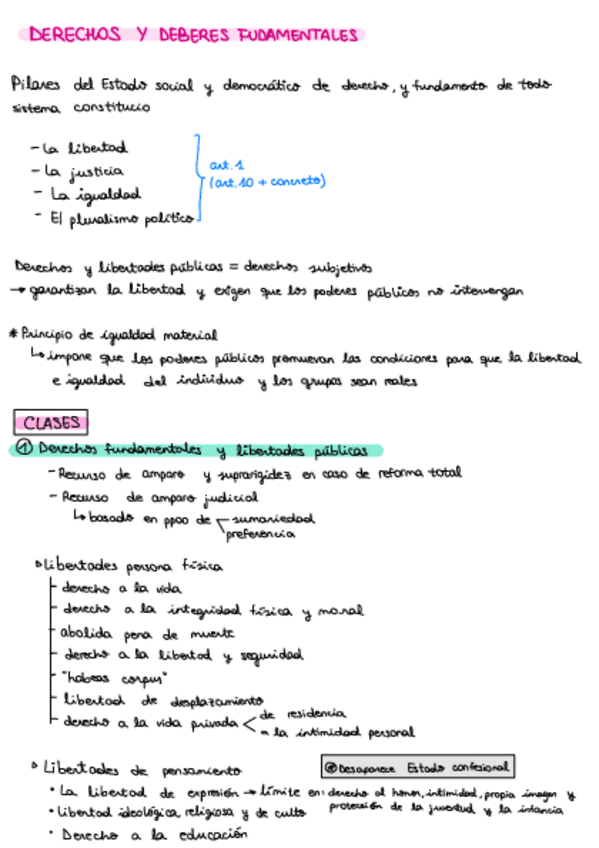 DERECHOS Y DEBERES FUDAMENTALES
Pilares del Estado social y democrático de derecho, y fundamento de todo
sistema constitucio
- La libertad
- La justicia
- La igualdad
- El pluralismo político
art. 1
(art. 10 + concreto)
Derechos y libertades públicas = derechos subjetivos
→ garantizan la libertad y exigen que los poderes públicos no intervengan
* Principio de igualdad material
↳ impone que los poderes públicos promuevan las condiciones para que la libertad
e igualdad del individuo y los grupos sean reales
CLASES
① Derechos fundamentales y libertades públicas
- Recurso de amparo y suprarigidez en caso de reforma total
- Recurso de amparo judicial
↳ basado en ppoo de sumariedad
preferencia
Libertades persona física
- derecho a la vida
- derecho a la integridad física y moral
- abolida pena de muerte
- derecho a la libertad y seguridad
- "habeas corpus"
- libertad de desplazamiento
- derecho a la vida privada < de residencia
a la intimidad personal
Libertades de pensamiento
Desaparece Estado confesional
• La libertad de expresión → límite en: derecho al honor, intimidad, propia imagen y
protección de la juventud y la infancia
• Libertad ideológica, religiosa y de culto
• Derecho a la educación